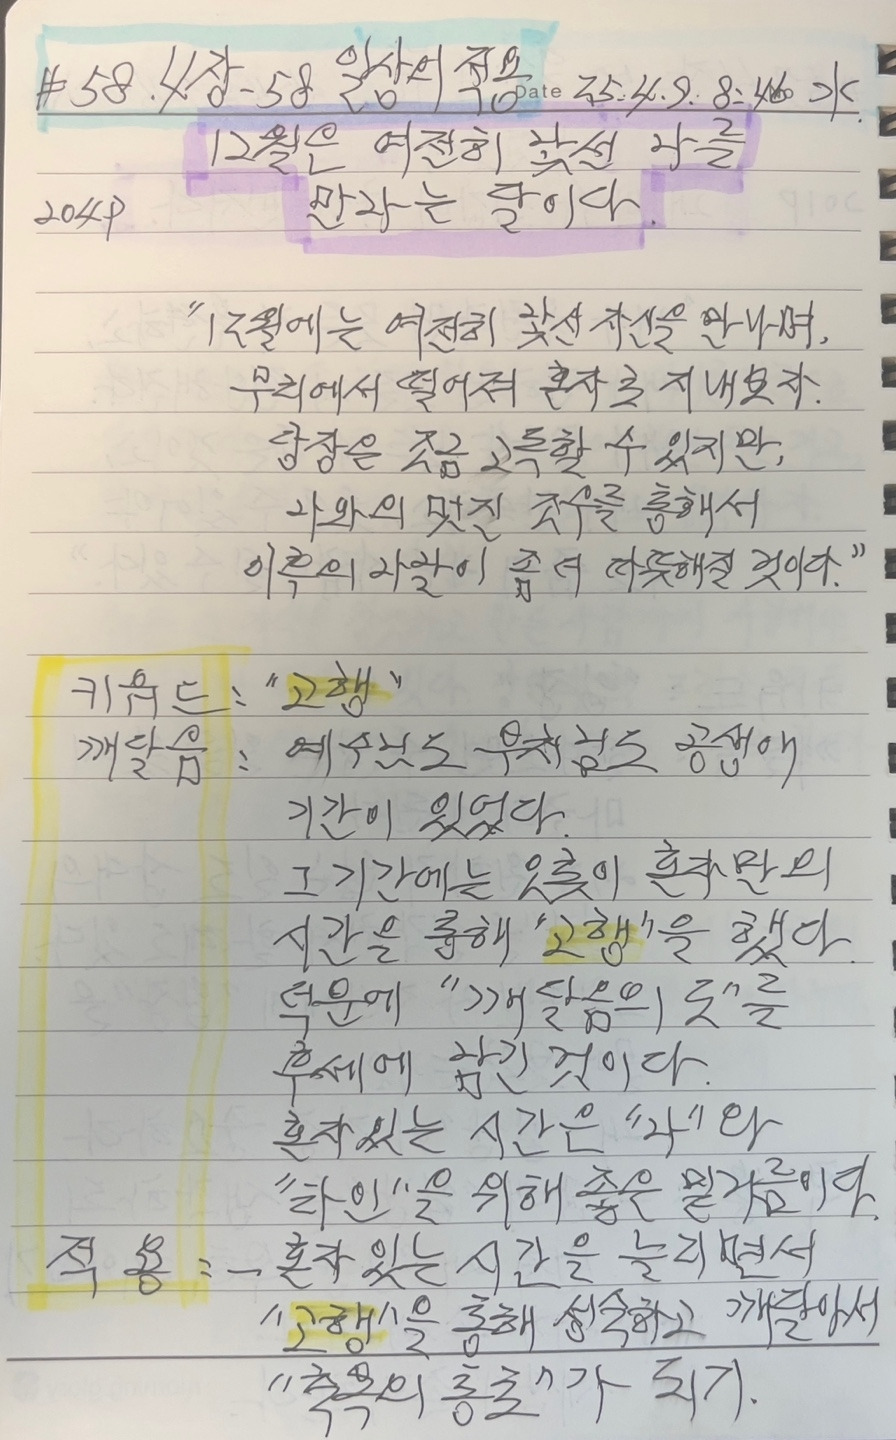 #58. 4장-58 일상의 적용
Date 25. 4. 9. 8:46 水
12월은 여전히 낯선 나를
204P 만나는 달이다.
"12월에는 여전히 낯선 자신을 만나며,
무리에서 떨어져 혼자로 지내보자.
당장은 조금 고독할 수 있지만,
나와의 멋진 조우를 통해서
이후의 나날이 좀 더 따뜻해질 것이다."
키워드 : "고행"
깨달음 : 예수님도 부처님도 공생애
기간이 있었다.
그 기간에는 오롯이 혼자만의
시간을 통해 "고행"을 했다.
덕분에 "깨달음의 도"를
후세에 남긴 것이다.
혼자 있는 시간은 "나"와
"타인"을 위해 좋은 밑거름이다.
적용 : - 혼자 있는 시간을 늘리면서
"고행"을 통해 성숙하고 깨달아서
"축복의 통로"가 되기.